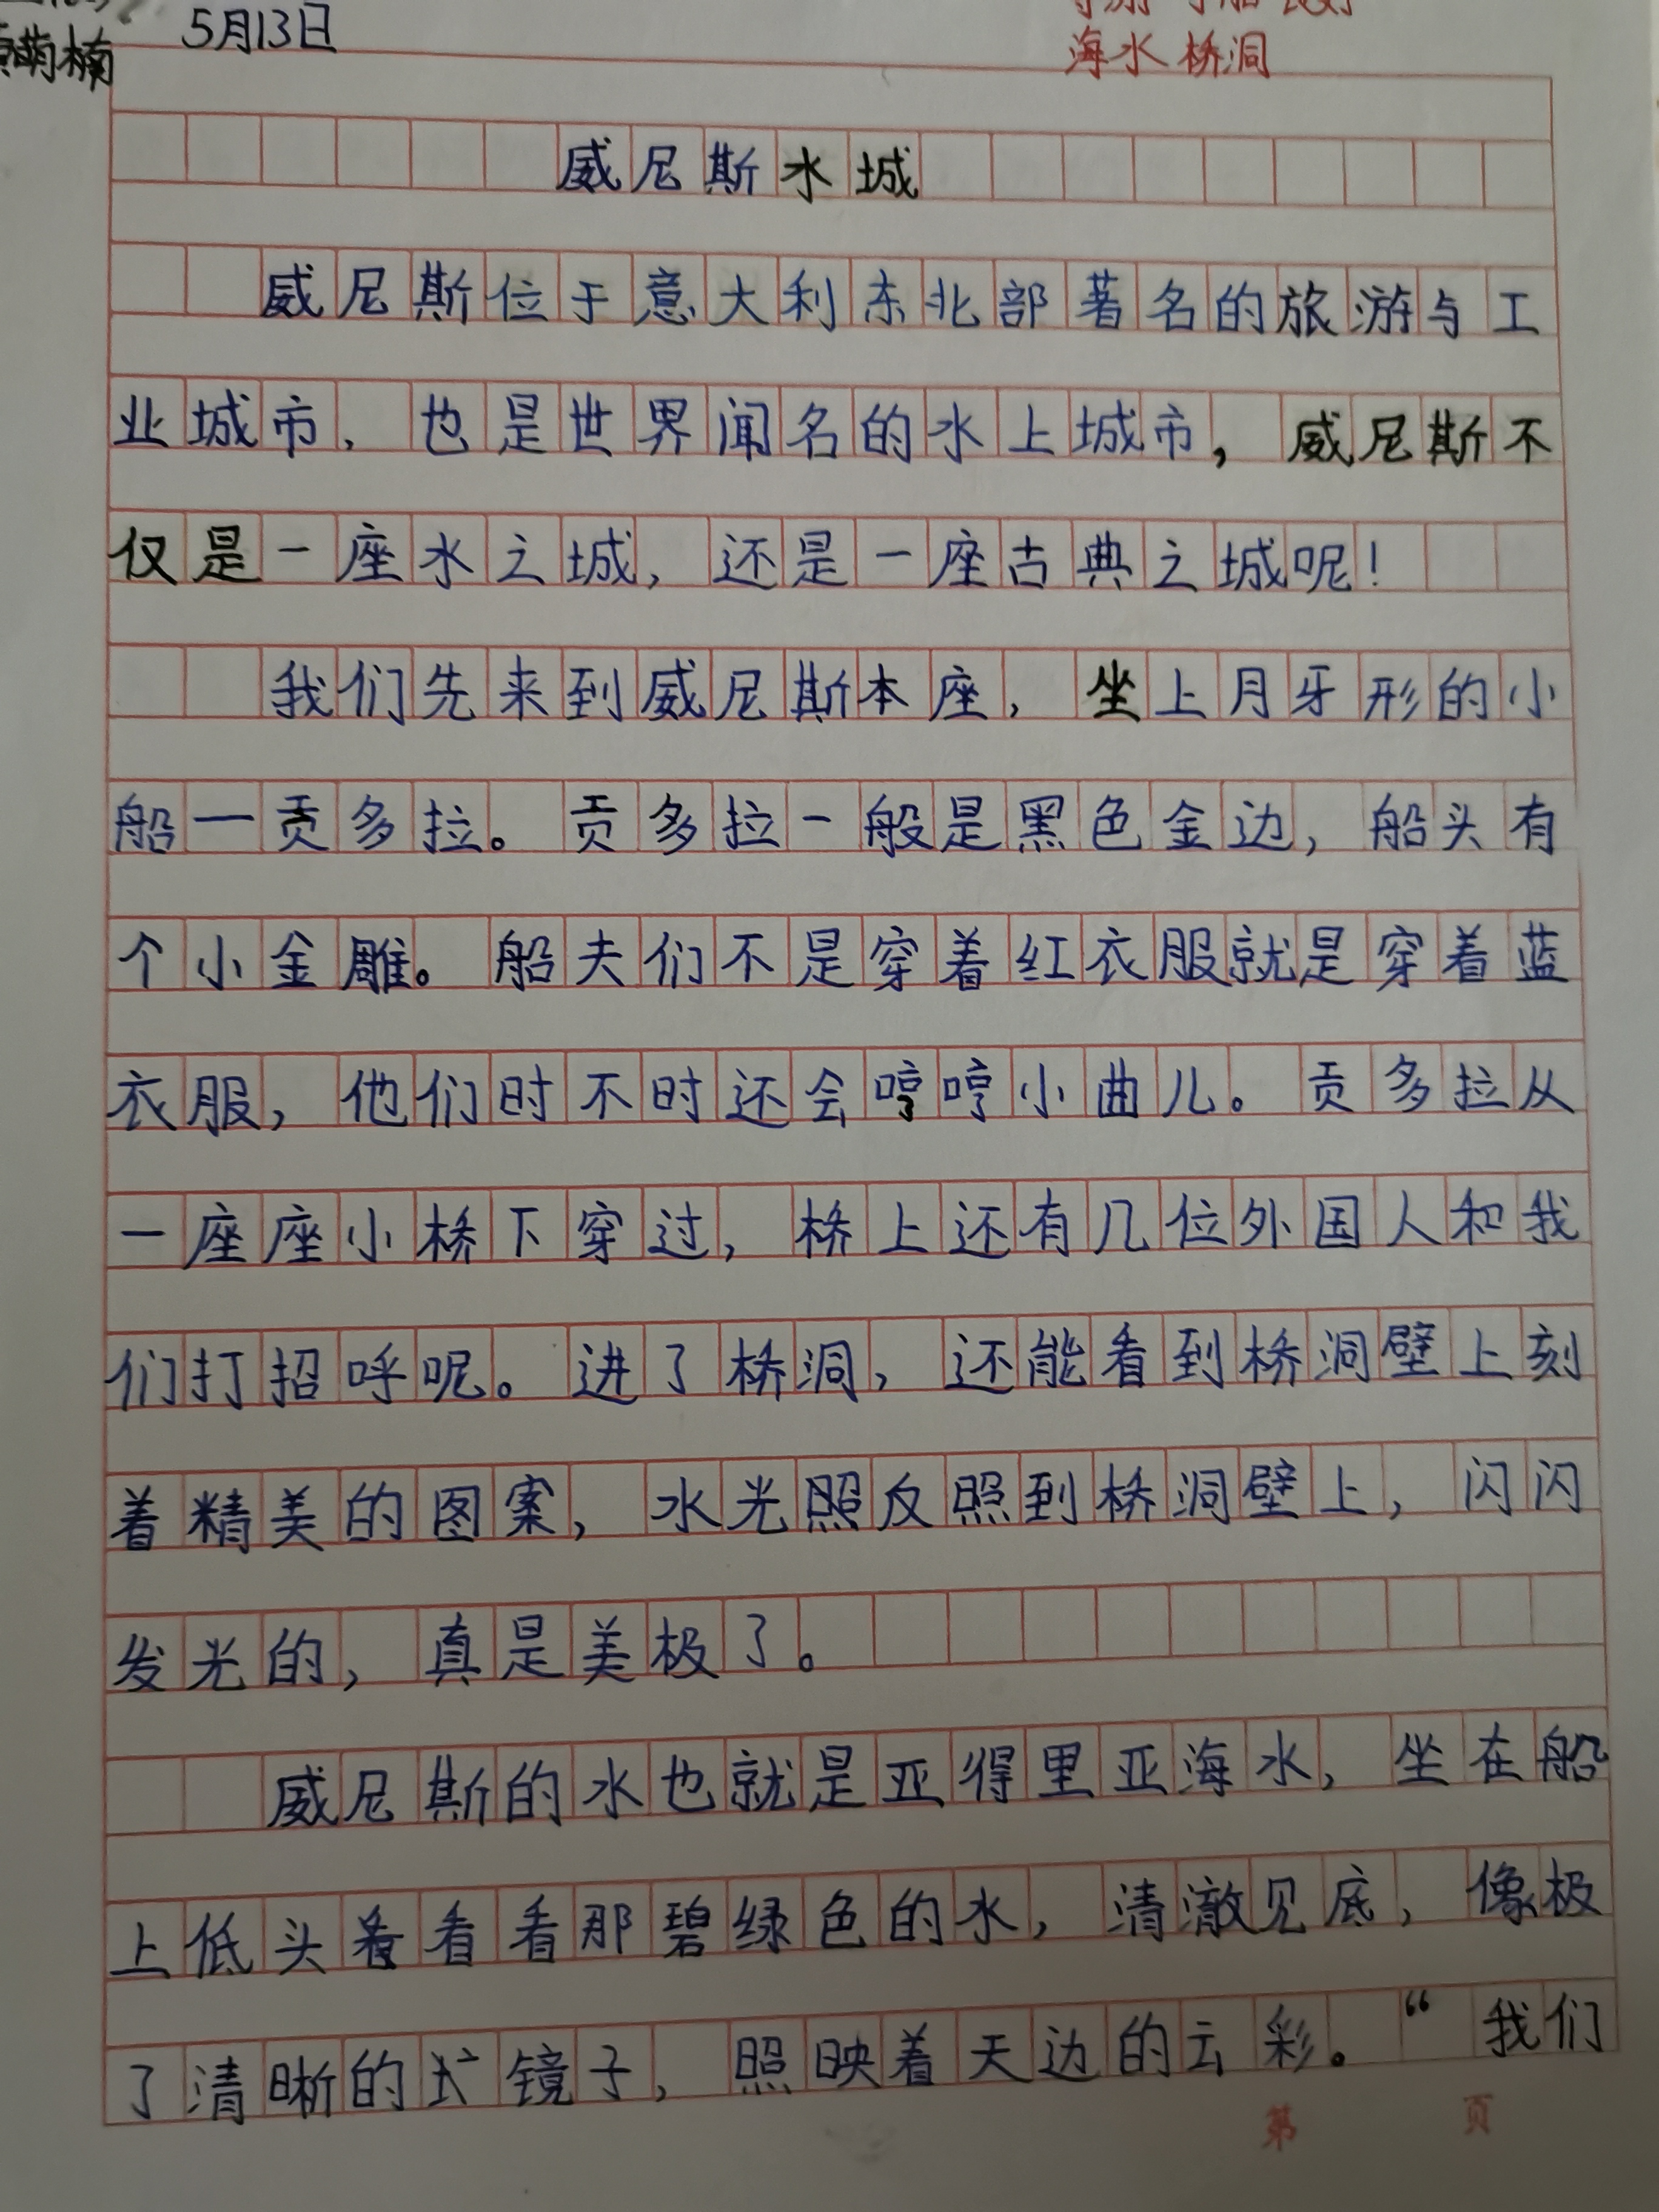 5月13日
萌楠
海水 桥洞
威尼斯水城
威尼斯位于意大利东北部著名的旅游与工
业城市，也是世界闻名的水上城市，威尼斯不
仅是一座水之城，还是一座古典之城呢！
我们先来到威尼斯本座，坐上月牙形的小
船一贡多拉。贡多拉一般是黑色金边，船头有
个小金雕。船夫们不是穿着红衣服就是穿着蓝
衣服，他们时不时还会哼哼小曲儿。贡多拉从
一座座小桥下穿过，桥上还有几位外国人和我
们打招呼呢。进了桥洞，还能看到桥洞壁上刻
着精美的图案，水光照反照到桥洞壁上，闪闪
发光的，真是美极了。
威尼斯的水也就是亚得里亚海水，坐在船
上低头看看看那碧绿色的水，清澈见底，像极
了清晰的镜子，照映着天边的云彩。“我们
第 页